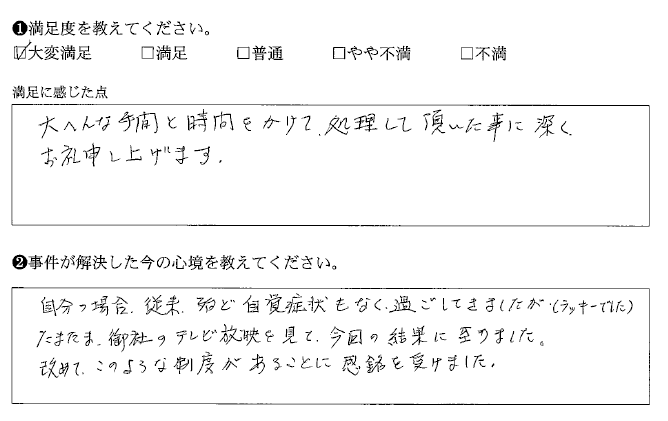 ❶満足度を教えてください。
☑大変満足 □満足 □普通 □やや不満 □不満
満足に感じた点
大へんな手間と時間をかけて、処理して頂いた事に深く
お礼申し上げます。
❷事件が解決した今の心境を教えてください。
自分の場合、従来、殆ど自覚症状もなく、過ごしてきましたが、(ラッキーでした)
たまたま、御社のテレビ放映を見て、今回の結果に至りました。
改めて、このような制度があることに感銘を受けました。